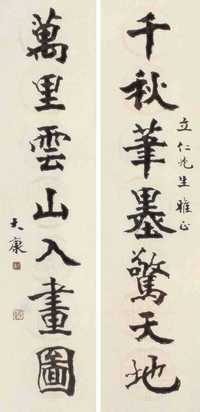 千秋筆墨驚天地
立仁先生雅正
萬里雲山入畫圖
大康